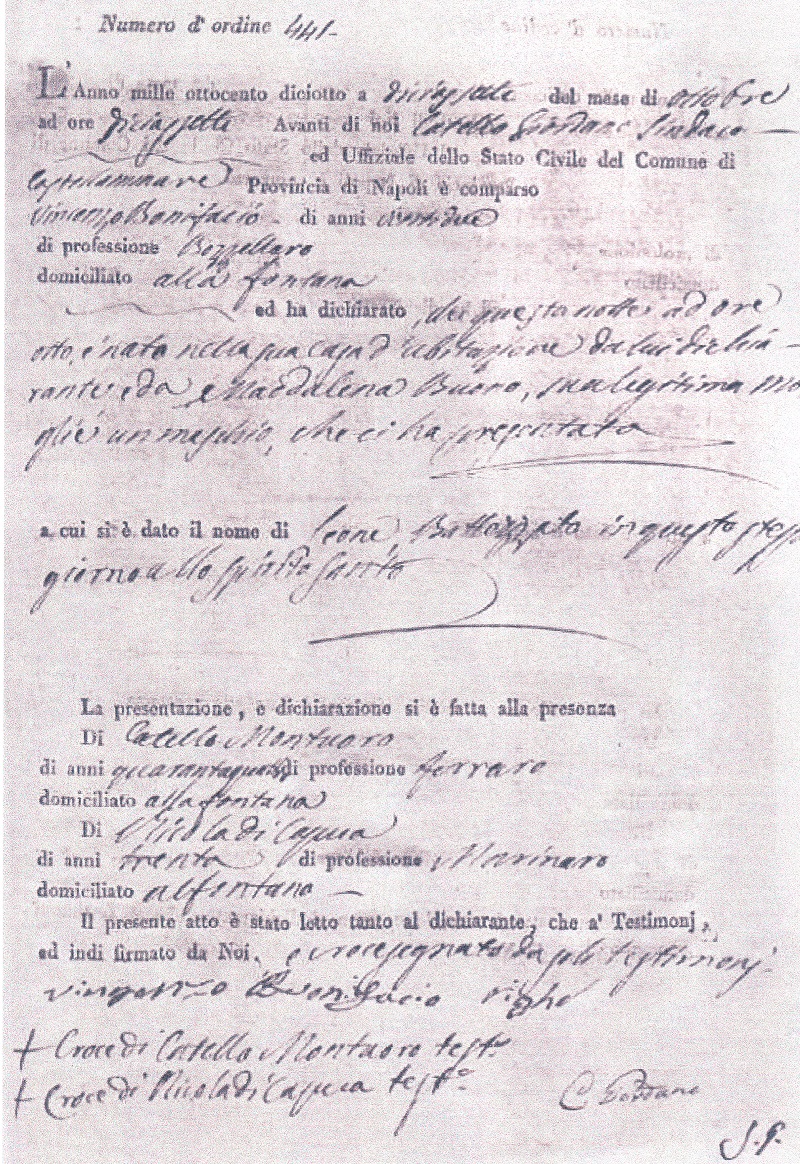 Numero d'ordine 441-
L'Anno mille ottocento diciotto a diciassette del mese di ottobre
ad ore diciassette Avanti di noi Catello Giordano Sindaco —
ed Uffiziale dello Stato Civile del Comune di
Castellammare Provincia di Napoli è comparso
Vincenzo Bonifacio - di anni ventidue
di professione Bozzellaro
domiciliato alla fontana
ed ha dichiarato, che questa notte ad ore
otto, è nato nella sua casa d'abitazione da lui dichia-
rante, e da Maddalena Buono, sua legitima mo
glie un maschio, che ci ha presentato
a cui si è dato il nome di Leone Battezzato in questo stess
giorno allo Spirito Santo
La presentazione, e dichiarazione si è fatta alla presenza
Di Catello Montuoro
di anni di professione ferraro
domiciliato alla fontana
Di Nicola di Capua
di anni trenta di professione Marinaro
domiciliato al fontano —
Il presente atto è stato letto tanto al dichiarante, che a' Testimonj,
ed indi firmato da Noi, e crocesegnato da gli testimonj
vingenzo Bonifacio
+ Croce di Catello Montuoro test.º
+ Croce di Nicola di Capua test.º
C Giordano